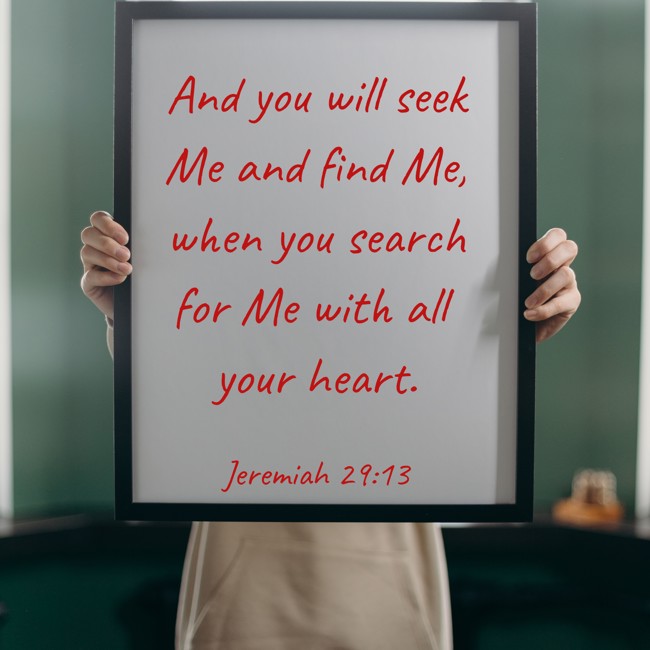 And you will seek
Me and find Me,
when you search
for Me with all
your heart.
Jeremiah 29:13